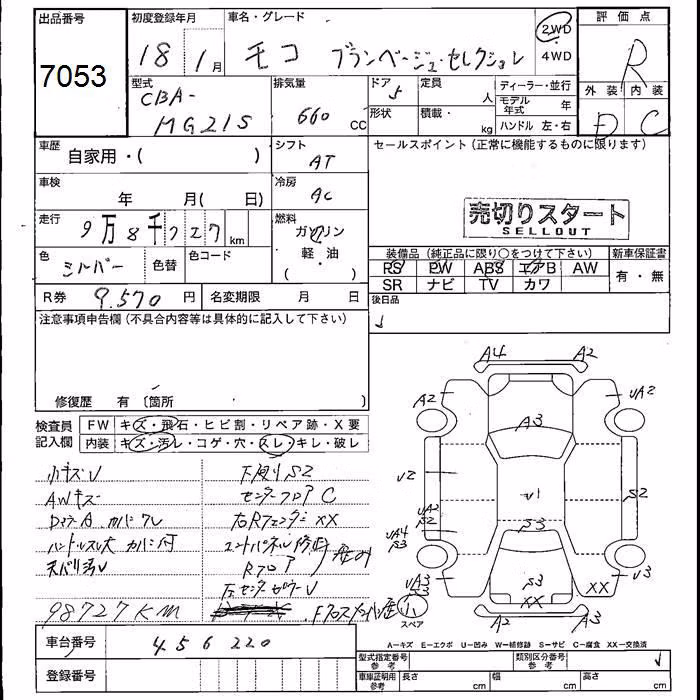 出品番号
7053
初度登録年月
18 1月
車名・グレード
モコ ブランベージュ・セレクション
2WD
4WD
評価点
R
外装 内装
D C
型式
CBA-
MG21S
排気量
660 CC
ドア 5
定員 人
形状
積載・ kg
ディーラー・並行
モデル年式 年
ハンドル 左・右
車歴
自家用・( )
シフト
AT
セールスポイント(正常に機能するものに限ります)
売切りスタート
SELLOUT
車検
年 月( 日)
冷房
AC
走行
9万8千727km
燃料
ガソリン
軽・油
( )
色
シルバー
色替
色コード
装備品(純正品に限り○をつけて下さい)
新車保証書
RS PW ABS エアB AW
SR ナビ TV カワ
有・無
R券 9.570円
名変期限 月 日
後日品
注意事項申告欄(不具合内容等は具体的に記入して下さい)
修復歴 有 〔箇所
検査員
記入欄
FW キズ・飛石・ヒビ割・リペア跡・X要
内装 キズ・汚レ・コゲ・穴・スレ・キレ・破レ
小キズV
下廻りS2
AWキズ
センターフロアC
右RフェンダーXX
Rフロア
98727KM
A4 A2
A2 A3 uA2
u2 u1 S2
uA2
S2
S3
uA4
S3
uA3
S3
S3
XX XX
u3
A2 A2
小
スペア
A-キズ E-エクボ U-凹み W-補修跡 S-サビ C-腐食 XX-交換済
車台番号
456220
登録番号
型式指定番号
参考
類別区分番号
参考
車庫証明用
参考
長さ cm
幅 cm
高さ cm